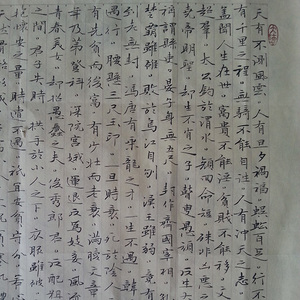 天有不測風雲 人有旦夕禍福 蜈蚣百足 行不
有千里之程 無騎不能自往 人有沖天之志
蓋聞人生在世 富貴不能淫 貧賤不能移 文
超羣 太公釣於渭水 顏回命短 殊非凶惡
帝明聖 却生不肖之子 瞽叟愚頑 反生大
稱謂縣吏 晏子身無五尺 封作齊國宰相 孔
楚霸雖雄 敗於烏江自刎 漢王雖弱 竟有
到老無封 馮唐有乘龍之才 一生不遇 韓
遇行 腰懸三尺印 一旦時衰 死於陰人
富 有少壯而老衰 滿腹文章
年及第登科 深院宮娥 運退反為妓妾 風流
青春美女 却招愚蠢之夫 俊秀郎君 反配粗
之間 君子失時 拱手於小人之下 衣服雖破
安量 時遭不遇 只宜安貧守分